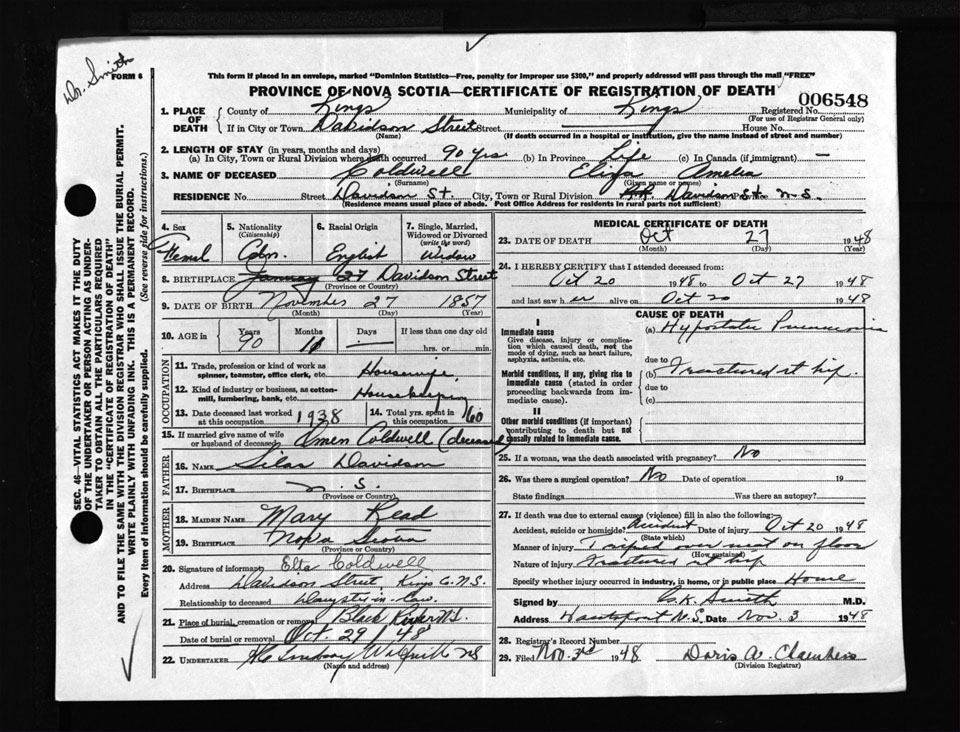 Dr. Smith
FORM 6
This form if placed in an envelope, marked "Dominion Statistics—Free, penalty for improper use $300," and properly addressed will pass through the mail "FREE"
PROVINCE OF NOVA SCOTIA—CERTIFICATE OF REGISTRATION OF DEATH
006548
1. PLACE OF DEATH
County of Kings Municipality of Kings Registered No.
(For use of Registrar General only)
If in City or Town Davidson Street Street House No.
(Name) (If death occurred in a hospital or institution, give the name instead of street and number)
2. LENGTH OF STAY (in years, months and days)
(a) In City, Town or Rural Division where death occurred 90 yrs (b) In Province Life (c) In Canada (if immigrant) —
3. NAME OF DECEASED Coldwell Eliza Amelia
(Surname) (Given name or names)
RESIDENCE No. Street Davidson St. City, Town or Rural Division Davidson St Province N.S.
(Residence means usual place of abode. Post Office Address for residents in rural parts not sufficient)
4. Sex
5. Nationality (Citizenship)
6. Racial Origin
7. Single, Married, Widowed or Divorced (write the word)
Femal Cdn. English Widow
8. BIRTHPLACE January 27 Davidson Street
(Province or Country)
9. DATE OF BIRTH November 27 1857
(Month) (Day) (Year)
10. AGE in Years Months Days If less than one day old
90 11 — hrs. or min.
OCCUPATION
11. Trade, profession or kind of work as spinner, teamster, office clerk, etc. Housewife,
12. Kind of industry or business, as cotton-mill, lumbering, bank, etc. Housekeeping
13. Date deceased last worked at this occupation 1938
14. Total yrs. spent in this occupation 60
15. If married give name of wife or husband of deceased Coldwell (deceased)
FATHER
16. NAME Silas Davidson
17. BIRTHPLACE N.S.
(Province or Country)
MOTHER
18. MAIDEN NAME Mary Read
19. BIRTHPLACE Nova Scotia
(Province or Country)
20. Signature of informant Elta Coldwell
Address Davidson Street, Kings Co. N.S.
Relationship to deceased Daughter-in-law.
21. Place of burial, cremation or removal Black River N.S.
Date of burial or removal Oct. 29/48
22. UNDERTAKER Lindsay N.S
(Name and address)
MEDICAL CERTIFICATE OF DEATH
23. DATE OF DEATH Oct 27 1948
(Month) (Day) (Year)
24. I HEREBY CERTIFY that I attended deceased from:
Oct 20 1948 to Oct 27 1948
and last saw her alive on Oct 20 1948
CAUSE OF DEATH
I
Immediate cause
Give disease, injury or complication which caused death, not the mode of dying, such as heart failure, asphyxia, asthenia, etc.
(a) Hypostatic Pneumonia
due to
Morbid conditions, if any, giving rise to immediate cause (stated in order proceeding backwards from immediate cause).
(b) Fractured rt hip.
due to
(c)
II
Other morbid conditions (if important) contributing to death but not causally related to immediate cause.
25. If a woman, was the death associated with pregnancy? No
26. Was there a surgical operation? No Date of operation 19
State findings Was there an autopsy?
27. If death was due to external causes (violence) fill in also the following:
Accident, suicide or homicide? Accident Date of injury Oct 20 1948
(State which)
Manner of injury Tripped over mat on floor
(How sustained)
Nature of injury Fractured rt hip
Specify whether injury occurred in industry, in home, or in public place Home
Signed by Smith M.D.
Address Hantsport N.S. Date Nov. 3 1948
28. Registrar's Record Number
29. Filed Nov. 3rd 1948 Doris A. Chambers
(Division Registrar)
SEC. 46—VITAL STATISTICS ACT MAKES IT THE DUTY
OF THE UNDERTAKER OR PERSON ACTING AS UNDER-
TAKER TO OBTAIN ALL THE PARTICULARS REQUIRED
IN THE "CERTIFICATE OF REGISTRATION OF DEATH"
AND TO FILE THE SAME WITH THE DIVISION REGISTRAR WHO SHALL ISSUE THE BURIAL PERMIT.
WRITE PLAINLY WITH UNFADING INK. THIS IS A PERMANENT RECORD.
Every item of information should be carefully supplied. (See reverse side for instructions.)